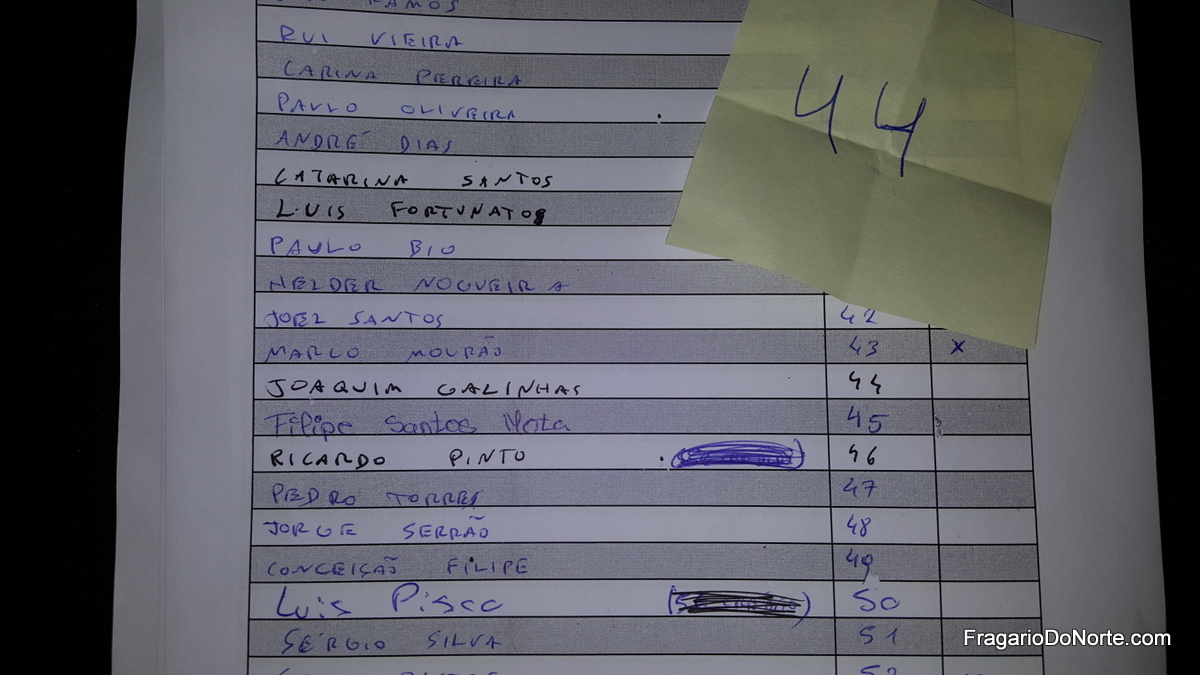 RAMOS
RUI VIEIRA
CARINA PEREIRA
PAULO OLIVEIRA
ANDRÉ DIAS
CATARINA SANTOS
LUIS FORTUNATO
PAULO BIO
HELDER NOGUEIRA
44
JOEL SANTOS 42
MARCO MOURÃO 43 X
JOAQUIM GALINHAS 44
Filipe Santos Mota 45
RICARDO PINTO 46
PEDRO TORRES 47
JORGE SERRÃO 48
CONCEIÇÃO FILIPE 49
Luis Pisco 50
SÉRGIO SILVA 51
52
FragarioDoNorte.com